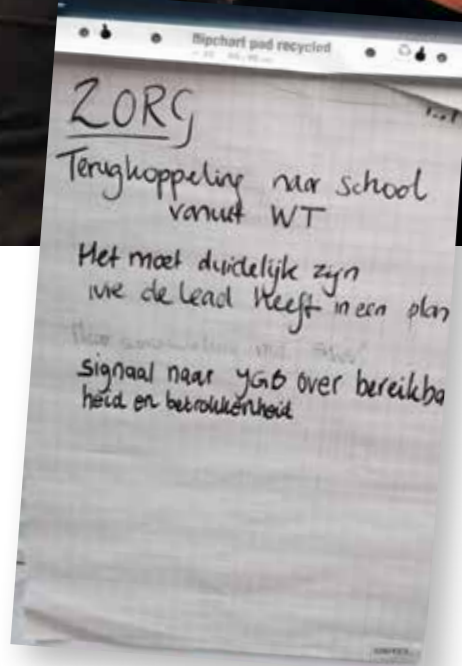 flipchart pad recycled
ZORG
Terugkoppeling naar school
vanuit WT
Het moet duidelijk zijn
wie de lead heeft in een plan
signaal naar JGB over bereikba
heid en betrokkenheid